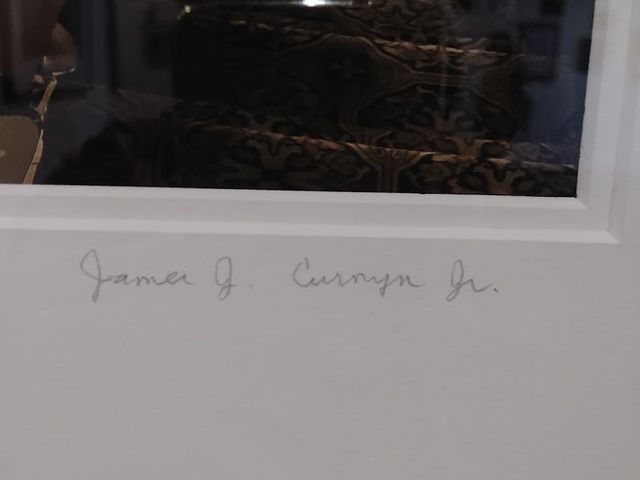 James J. Curnyn Jr.